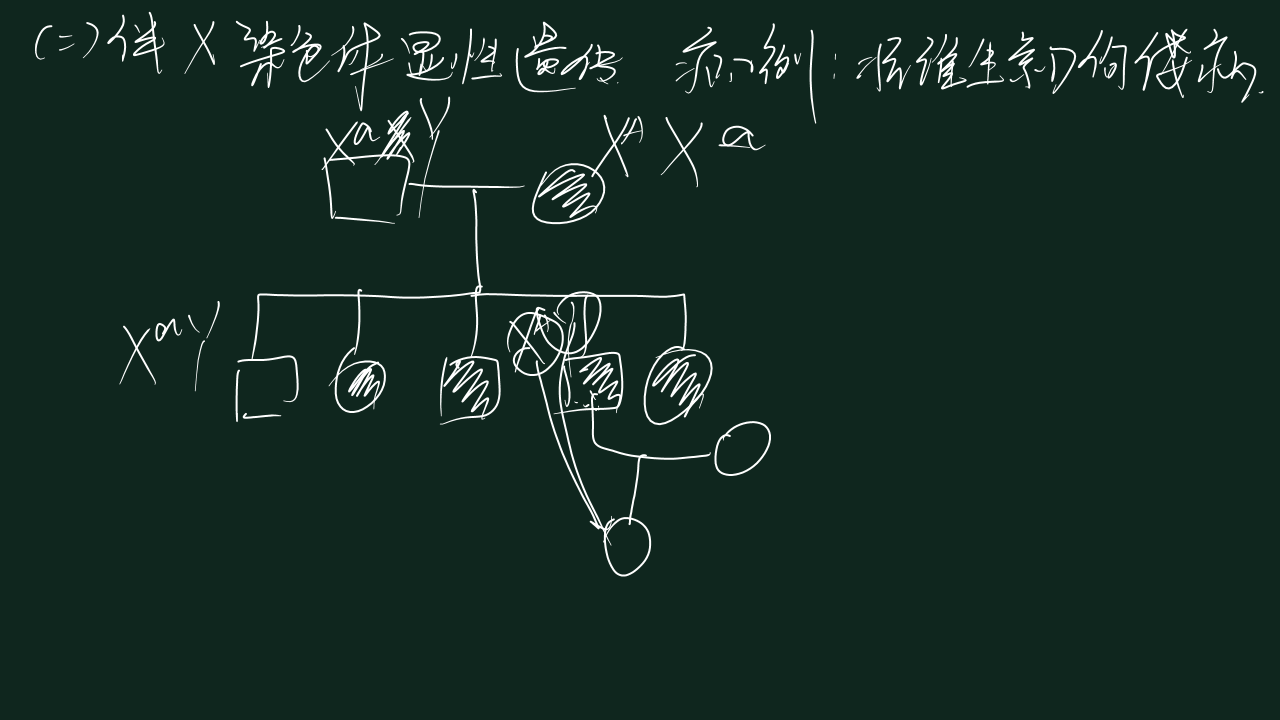 (二)伴X染色体显性遗传 病例:抗维生素D佝偻病.
XaY XAXa
XaY XAY